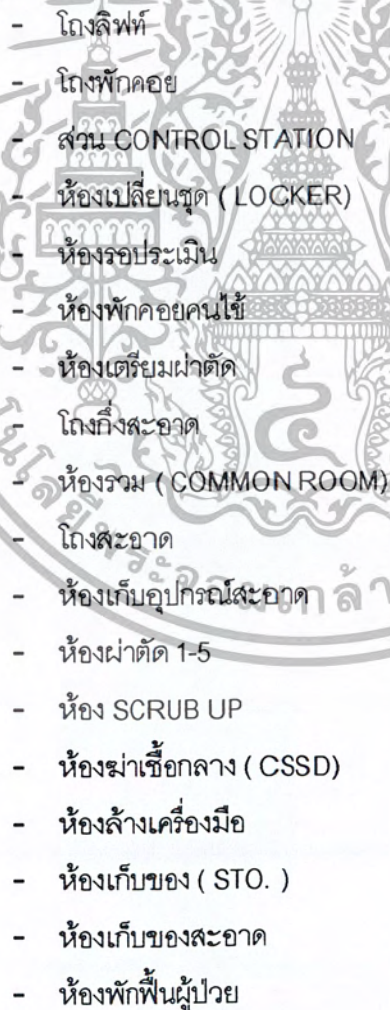 - โถงลิฟท์
- โถงพักคอย
- ส่วน CONTROL STATION
- ห้องเปลี่ยนชุด ( LOCKER)
- ห้องรอประเมิน
- ห้องพักคอยคนไข้
- ห้องเตรียมผ่าตัด
- โถงกึ่งสะอาด
- ห้องรวม ( COMMON ROOM)
- โถงสะอาด
- ห้องเก็บอุปกรณ์สะอาด
- ห้องผ่าตัด 1-5
- ห้อง SCRUB UP
- ห้องฆ่าเชื้อกลาง ( CSSD)
- ห้องล้างเครื่องมือ
- ห้องเก็บของ ( STO. )
- ห้องเก็บของสะอาด
- ห้องพักฟื้นผู้ป่วย